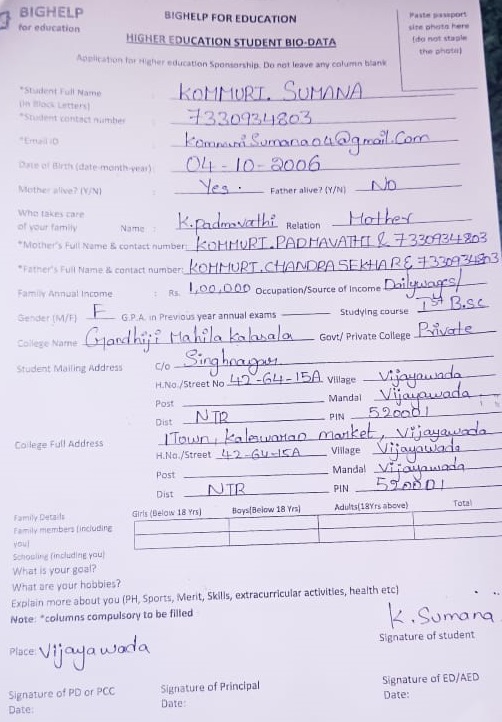 BIGHELP
for education
BIGHELP FOR EDUCATION
HIGHER EDUCATION STUDENT BIO-DATA
Paste passport
size photo here
(do not staple
the photo)
Application for Higher education Sponsorship. Do not leave any column blank
*Student Full Name : KOMMURI. SUMANA
(in Block Letters)
*Student contact number : 7330934803
*Email ID : KommuriSumana04@gmail.Com
Date of Birth (date-month-year): 04-10-2006
Mother alive? (Y/N) : Yes. Father alive? (Y/N) No
Who takes care
of your family Name : K.padmavathi Relation Mother
*Mother's Full Name & contact number: KOMMURI.PADMAVATHI & 7330934803
*Father's Full Name & contact number: KOMMURI.CHANDRASEKHAR & 7330934803
Family Annual Income : Rs. 1,00,000 Occupation/Source of Income Dailywages/
Gender (M/F) F G.P.A. in Previous year annual exams Studying course Ist B.sc
College Name Gandhiji Mahila kalasala Govt/ Private College Private
Student Mailing Address C/o Singhnagar
H.No./Street No 42-64-15A Village Vijayawada
Post Mandal Vijayawada
Dist NTR PIN 520001
College Full Address 1Town, Kaleswarao market, Vijayawada
H.No./Street 42-64-15A Village Vijayawada
Post Mandal Vijayawada
Dist NTR PIN 520001
Family Details Girls (Below 18 Yrs) Boys(Below 18 Yrs) Adults(18Yrs above) Total
Family members (including
you)
Schooling (including you)
What is your goal?
What are your hobbies?
Explain more about you (PH, Sports, Merit, Skills, extracurricular activities, health etc)
Note: *columns compulsory to be filled
K. Sumana
Signature of student
Place: Vijayawada
Signature of PD or PCC Signature of Principal Signature of ED/AED
Date: Date: Date: